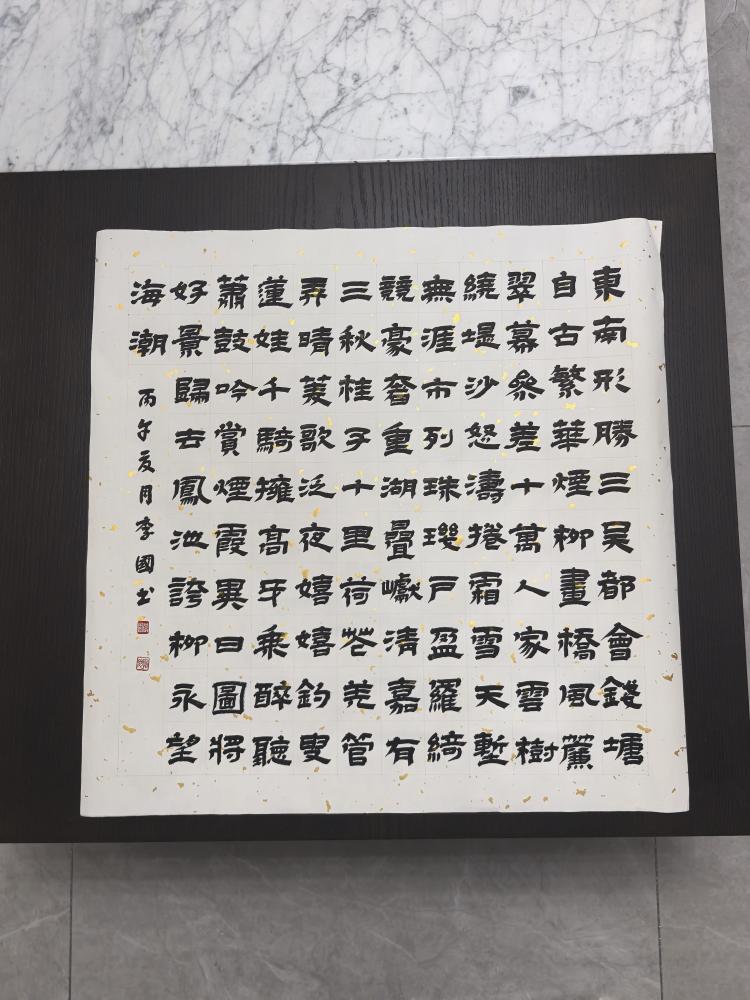 東南形勝三吴都會錢塘
自古繁華煙柳畫橋風簾
翠幕叅差十萬人家雲樹
繞堤沙怒濤捲霜雪天塹
無涯市列珠璣戶盈羅綺
競豪奢重湖疊巘清嘉有
三秋桂子十里荷花羌管
弄晴菱歌泛夜嬉嬉釣叟
蓮娃千騎擁高牙乘醉聽
蕭鼓吟賞煙霞異日圖將
好景歸去鳳池誇柳永望
海潮
丙午夏月李國书